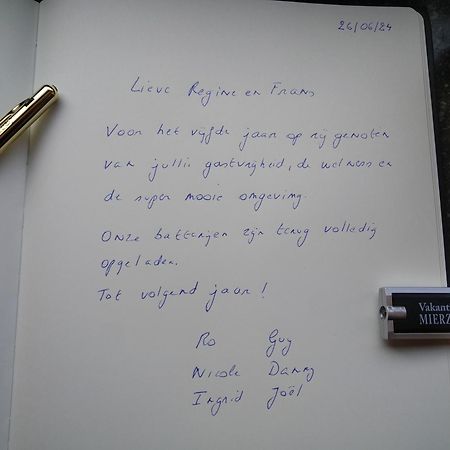 26/06/24
Lieve Regine en Frans
Voor het vijfde jaar op rij genoten
van jullie gastvrijheid, de welness en
de super mooie omgeving.
Onze batterijen zijn terug volledig
opgeladen.
Tot volgend jaar!
Ro Guy
Nicole Danny
Ingrid Joël
Vakant
MIERZ